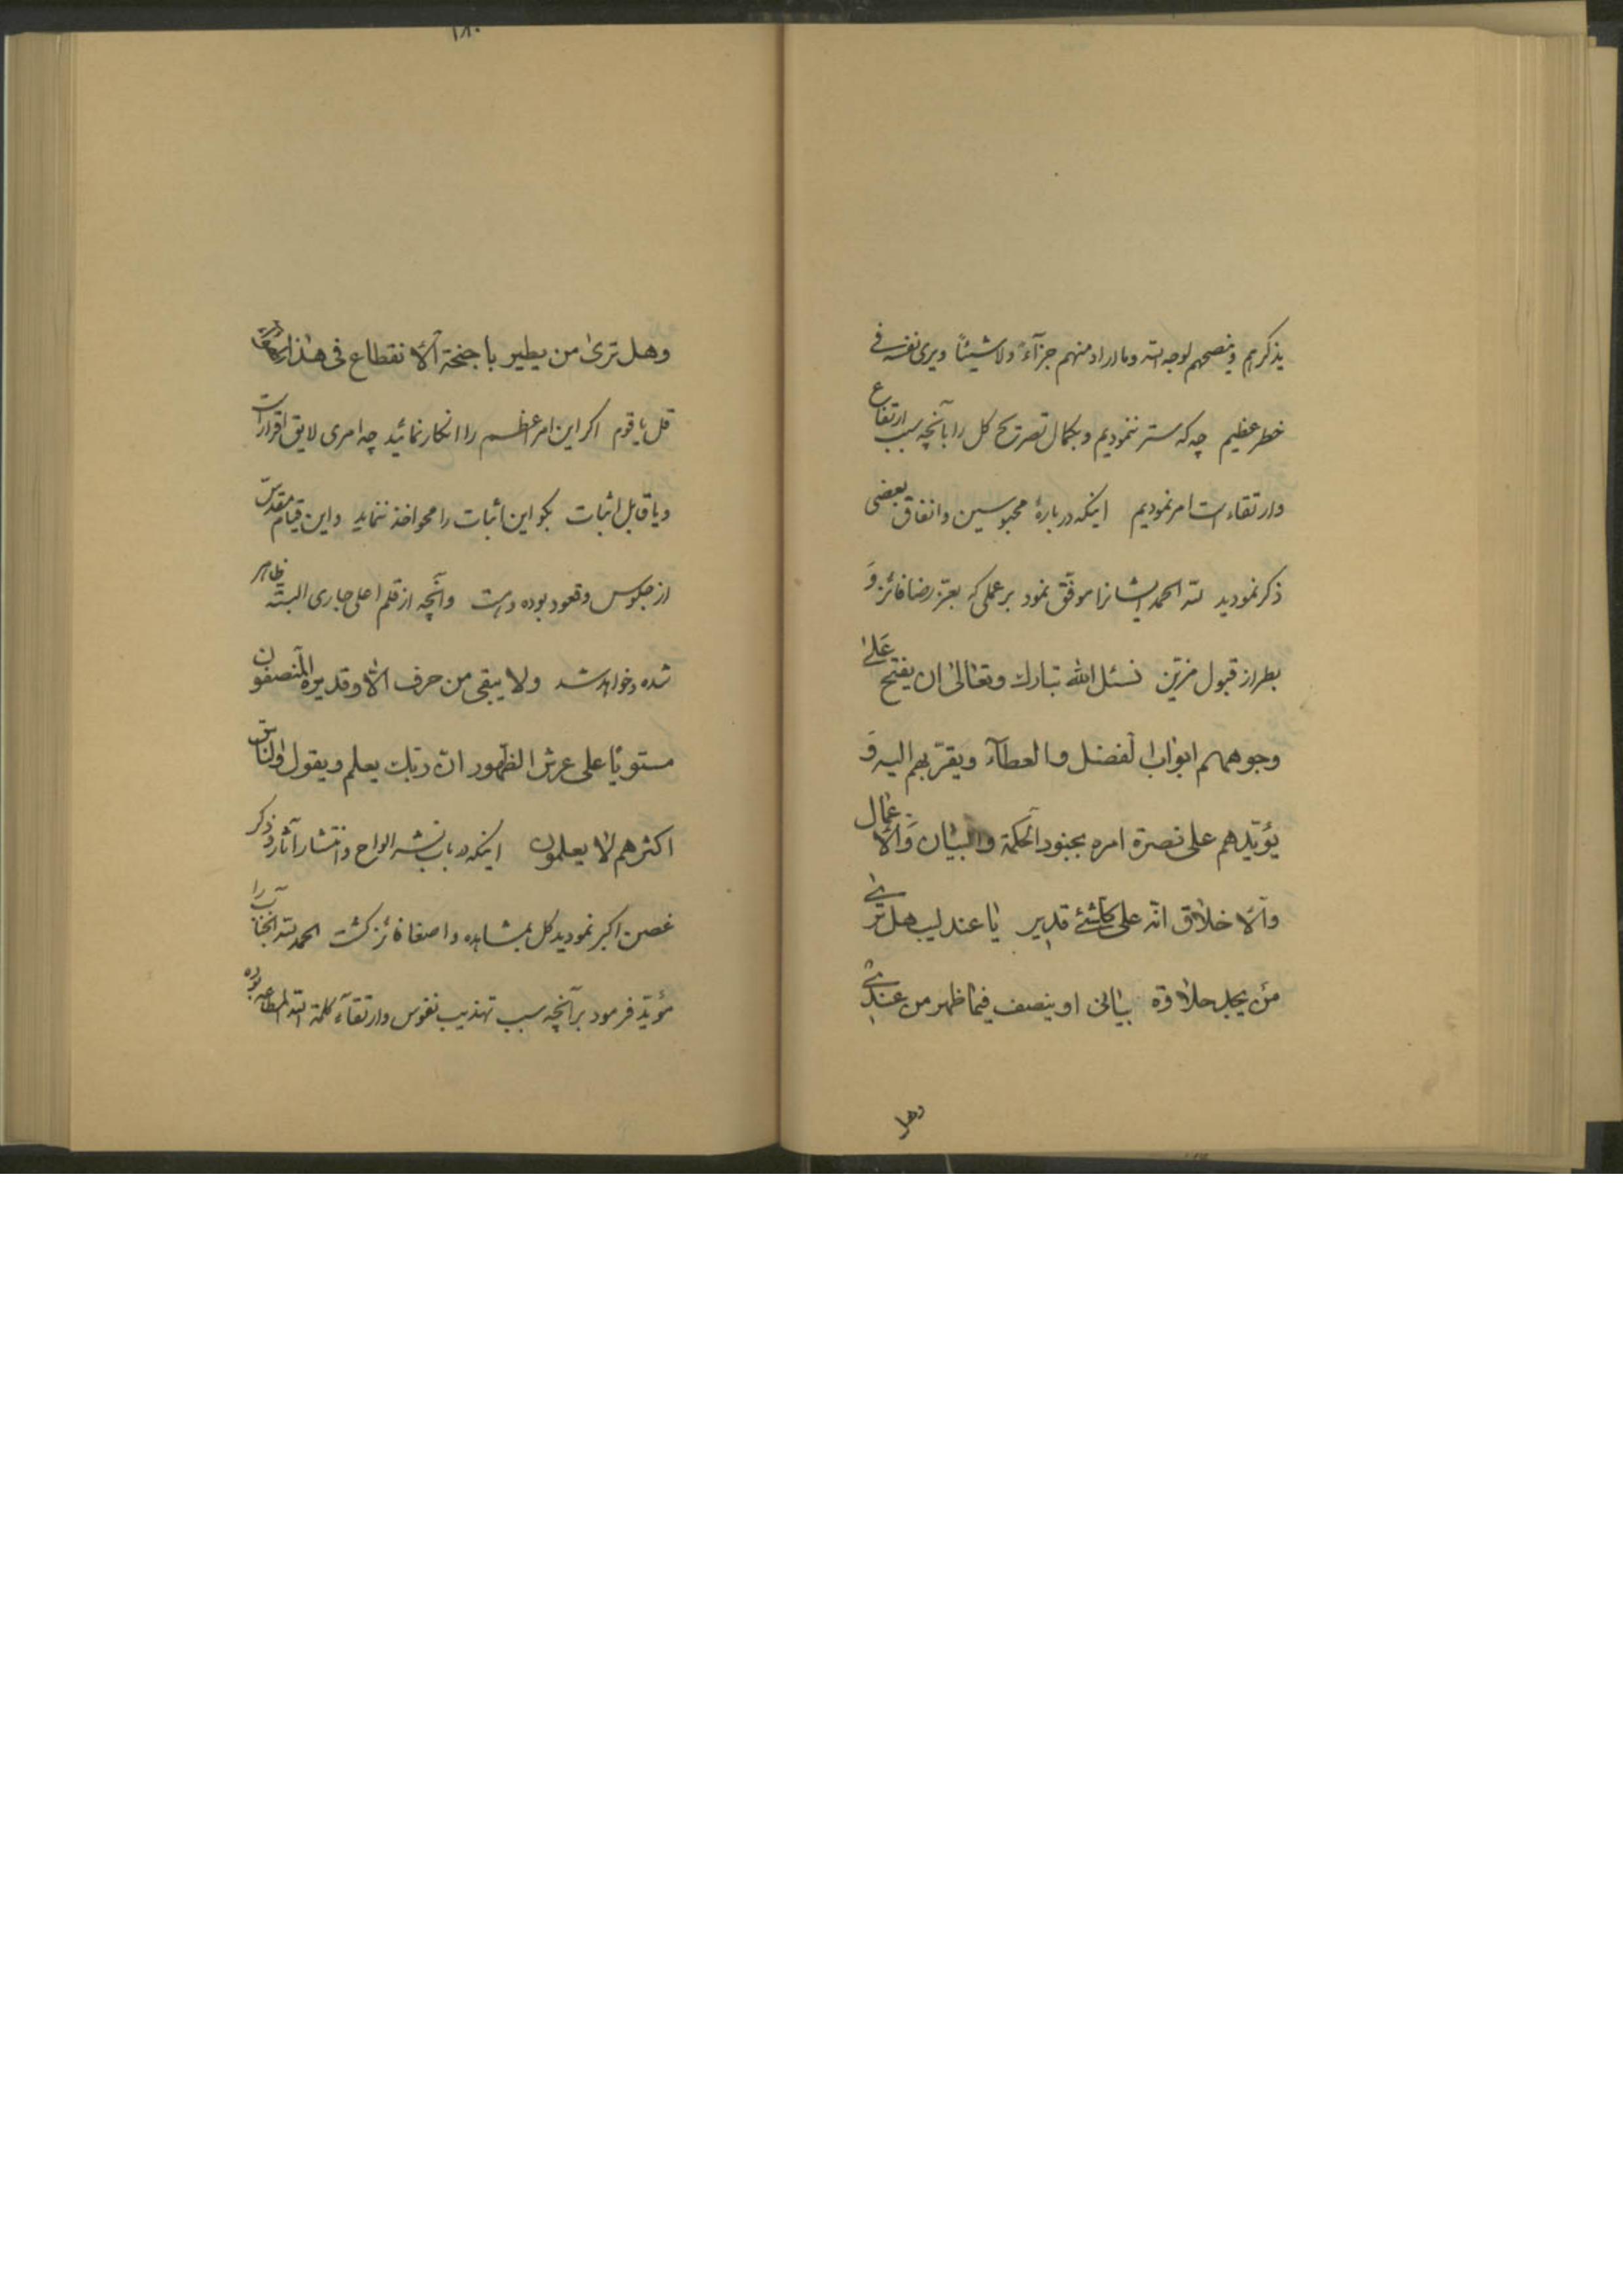 یذکرهم و ینصحهم لوجه الله و ما اراد منهم جزآءً ولا شیئاً ویری نفسه فی
خطر عظیم چه که ستر ننمودیم و بکمال تصریح کل را بآنچه سبب ارتفاع
وارتقاءست امر نمودیم اینکه دربارهٔ محبوسین وانفاق بعضی
ذکر نمودید لله الحمد ایشانرا موفّق نمود بر عملی که بعزّ رضا فائز وَ
بطراز قبول مزیّن نسئل الله تبارك وتعالیٰ ان یفتح عَلیٰ
وجوههم ابوٰاب الفضل و العطآء ویقرّبهم الیه وَ
یؤیّدهم علی نصرة امره بجنود الحکمة والبیٰان وَالأعمٰال
والأخلٰاق انّه علی کلشیئ قدیر یٰا عندلیب هل تریٰ
من یجد حلاوة بیٰانی او ینصف فیمٰا ظهر من عندی
وهل
۱۸۰
وهل تریٰ من یطیر باجنحة الأنقطاع فی هٰذا
قل یا قوم اکر این امر اعظم را انکار نمائید چه امری لایق اقرارست
ویا قابل اثبات بکو این اثبات را محو اخذ ننماید واین قیام مقدّس
از جلوس وقعود بوده وهست وآنچه از قلم اعلی جاری البتّه ظاهر
شده وخواهد شد ولا یبقی من حرف الّا وقد یره المنصفون
مستویًا علی عرش الظهور انّ ربّك یعلم ویقول والنّاس
اکثرهم لا یعلمون اینکه در باب نشر الواح وانتشار آثار وذکر
غصن اکبر نمودید کل بمشاهده واصغا فائز کشت الحمد لله آنجناب را
مؤیّد فرمود بر آنچه سبب تهذیب نفوس وارتقآء کلمة الله المطاعه بوده